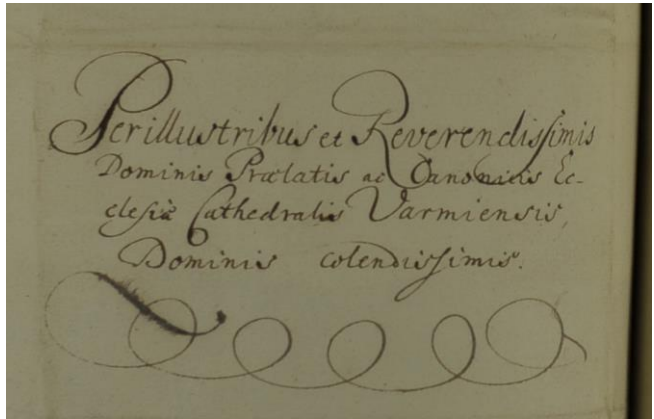 Perillustribus et Reverendissimis
Dominis Prælatis ac Canonicis Ec-
clesiæ Cathedralis Varmiensis,
Dominis colendissimis.